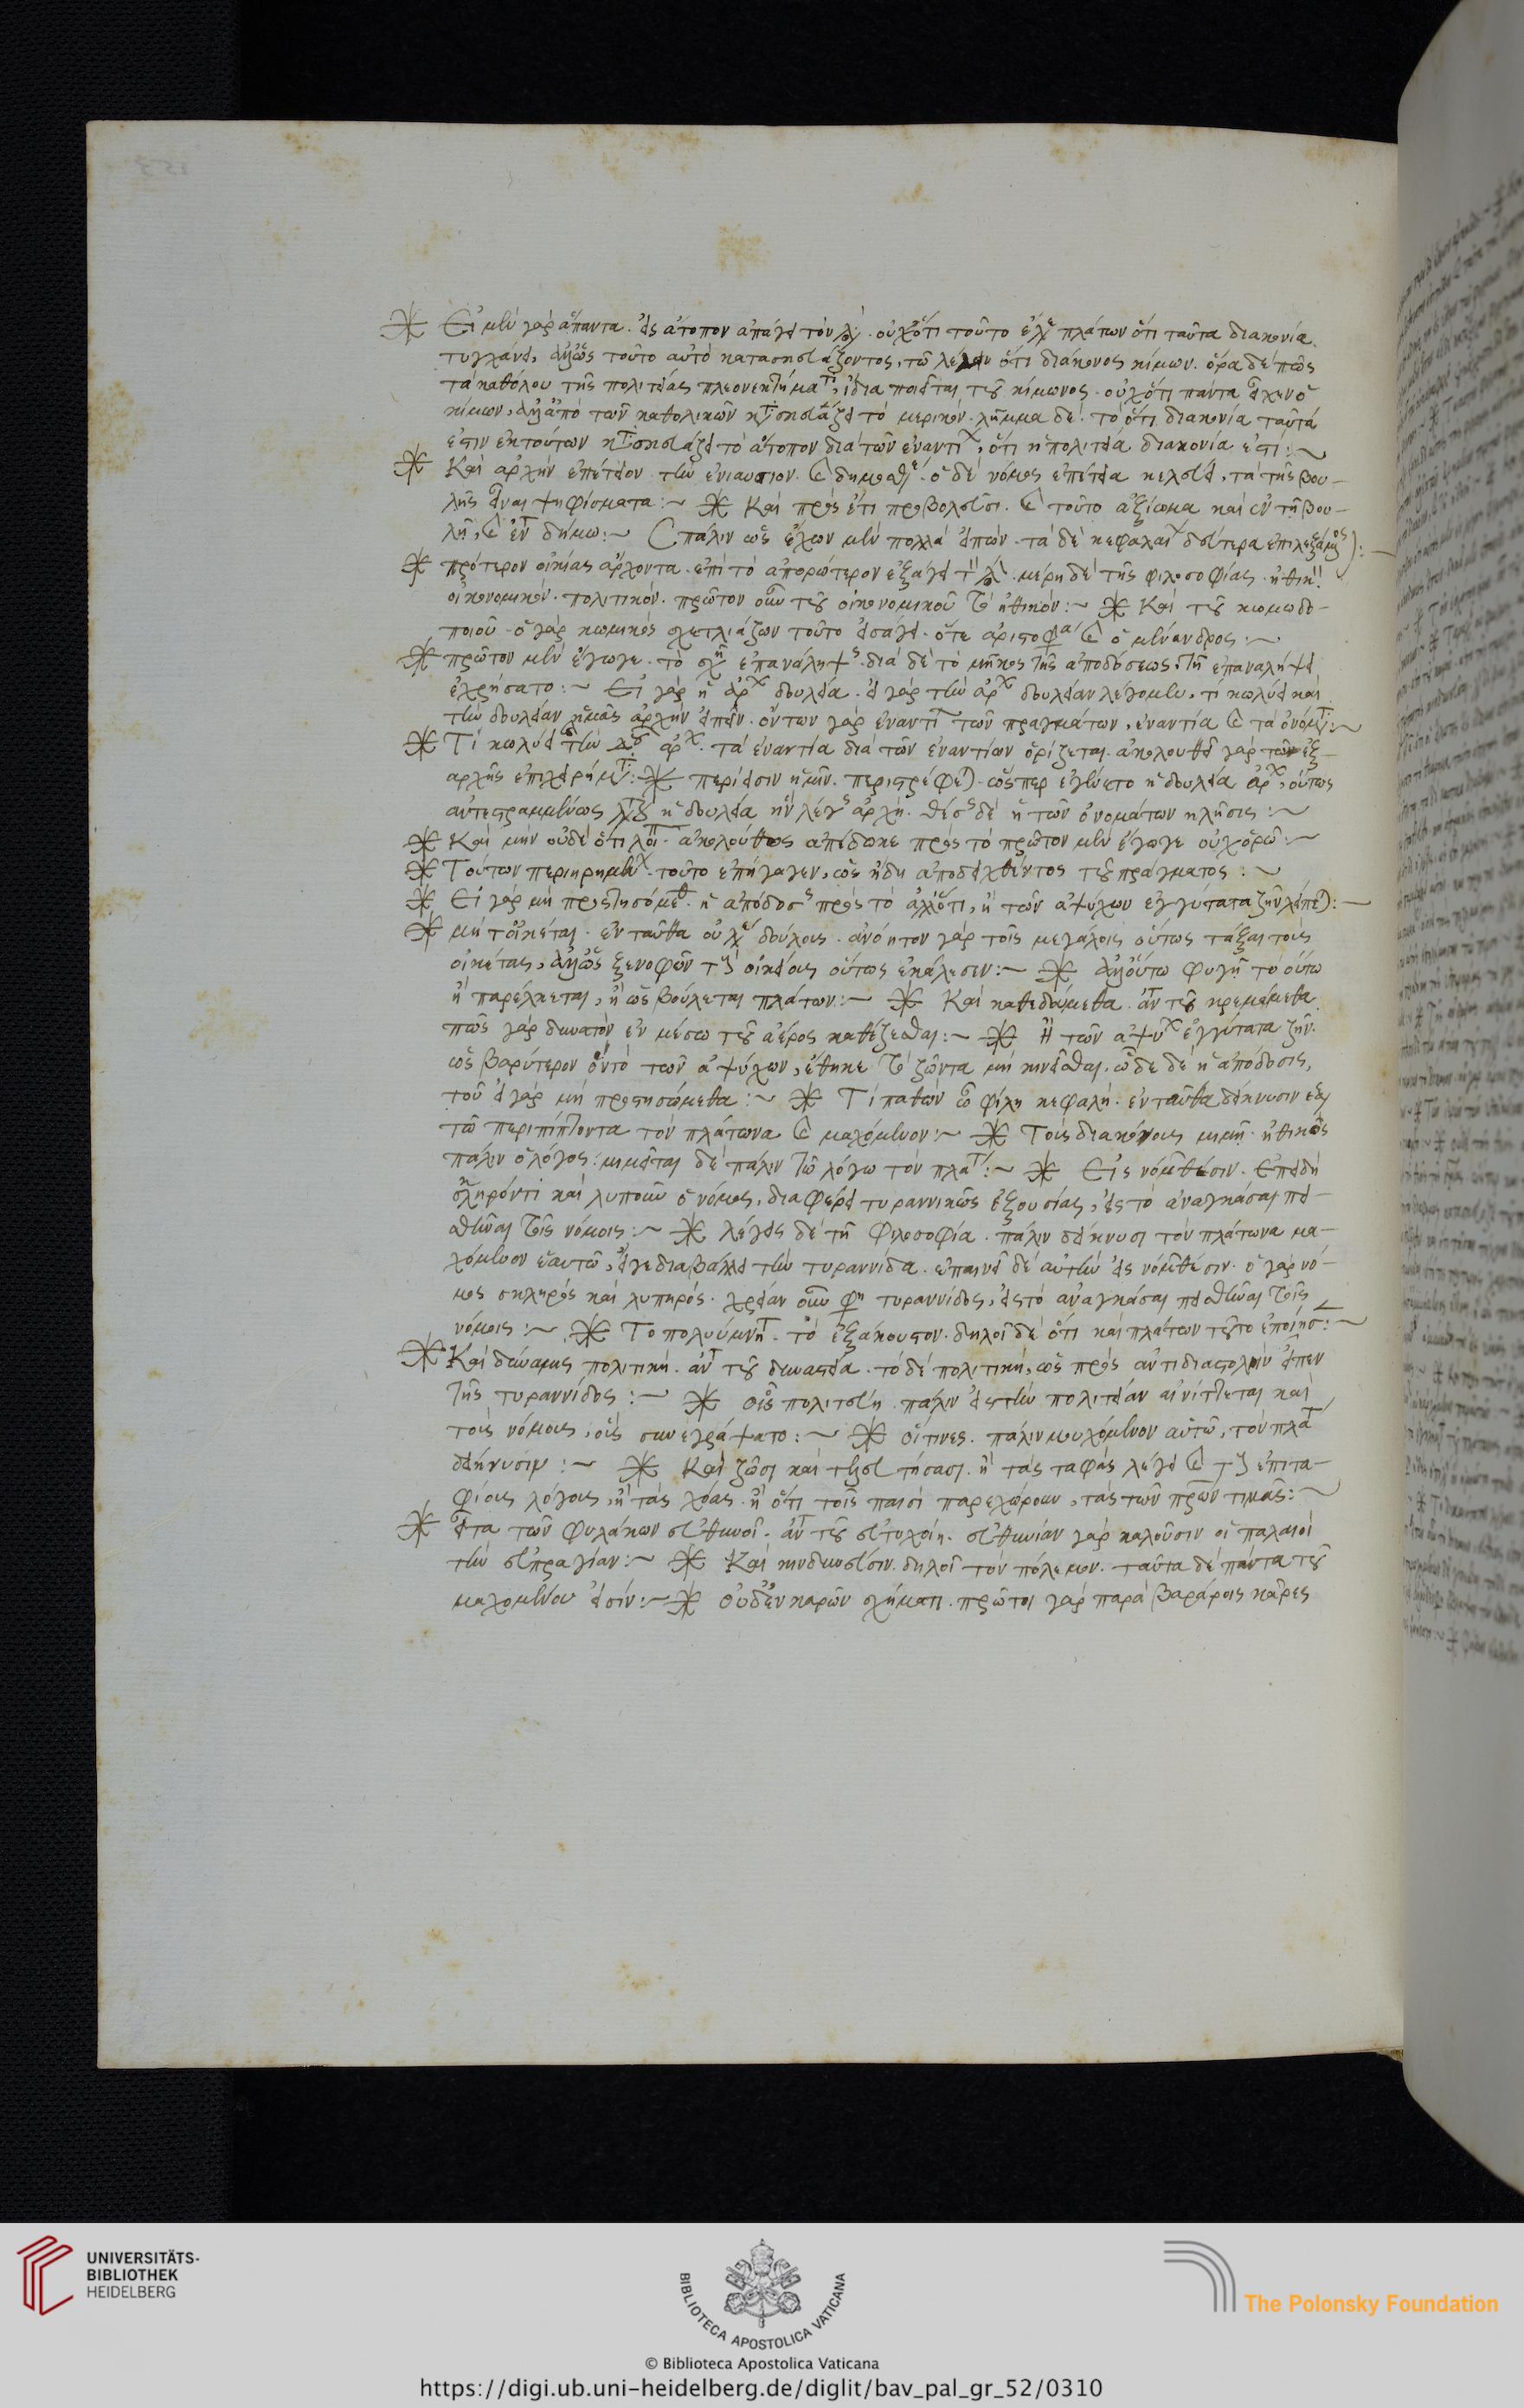 ※ Εἰ μὲν γὰρ ἅπαντα. εἰς ἄτοπον ἀπάγει τὸν λόγ. οὐχ ὅτι τοῦτο ἔλεγε πλάτων ὅτι ταῦτα διακονία
τυγχάνει, ἀλλ' ὡς τοῦτο αὐτὸ κατασκευάζοντος, τῶ λέγειν ὅτι διάκονος κίμων. ὅρα δὲ πῶς
τὰ καθόλου τῆς πολιτείας πλεονεκτήματ, ἴδια ποιεῖται τοῦ κίμωνος. οὐχ ὅτι πάντα εἶχεν ὁ
κίμων, ἀλλ' ἀπὸ τῶν καθολικῶν κατασκευάζει τὸ μερικόν. λῆμμα δὲ τὸ ὅτι διακονία ταῦτά
ἐστιν ἐκ τούτων κατασκευάζει τὸ ἄτοπον διὰ τῶν ἐναντί, ὅτι ἡ πολιτεία διακονία ἐστί :~
※ Καὶ ἀρχὴν ἐπέτειον. τὴν ἐνιαυσιον. καὶ δημο ὁ δὲ νόμος ἐπέτεια κελεύει, τὰ τῆς βου-
λῆς εἶναι ψηφίσματα :~ ※ Καὶ πρός ἔτι προβολεῦσι. καὶ τοῦτο ἀξίωμα καὶ ἐν τῆ βου-
λῆ, καὶ ἐν τ δήμω :~ πάλιν ὡς ἔχων μὲν πολλὰ εἰπών. τὰ δὲ κεφαλαι δεύτερα ἐπιλεξάμς) :~
※ πρότερον οἰκίας ἄρχοντα. ἐπὶ τὸ ἀπορώτερον ἐξάγει τ λόγ. μέρη δὲ τῆς φιλοσοφίας. ἠθικ
οἰκονομικόν. πολιτικόν. πρῶτον οὖν τοῦ οἰκονομικοῦ τὸ ἠθικόν :~ ※ Καὶ τοῦ κωμωδο-
ποιοῦ. ὁ γὰρ κωμικὸς σχετλιάζων τοῦτο εἰσάγει. ὅτε ἀριστοφα καὶ ὁ μένανδρος :~
※ πρῶτον μὲν ἔγωγε. τὸ σχῆ ἐπανάληψς. διὰ δὲ τὸ μῆκος τῆς ἀποδόσεως, τῆ ἐπαναλήψει
ἐχρήσατο :~ Εἰ γὰρ ἡ ἀρχ δουλεία. εἰ γὰρ τὴν ἀρχ δουλείαν λέγομεν, τι κωλύει καὶ
τὴν δουλείαν ἡμᾶς ἀρχὴν εἰπεῖν. ὄντων γὰρ ἐναντί τῶν πραγμάτων, ἐναντία καὶ τὰ ὀνόματ :~
※ Τί κωλύει τὴν ἀρχ. τὰ ἐναντία διὰ τῶν ἐναντίων ὁρίζεται. ἀκολουθεῖ γὰρ τῶν ἐξ-
αρχῆς ἐπιχειρήματ :~ ※ περίεισιν ἡμῖν. περιστρέφε). ὥσπερ ἐγένετο ἡ δουλεία ἀρχ, οὕτως
ἀντεστραμμένως ἡ δουλεία ἣν λέγς ἀρχή. θέσς δὲ ἡ τῶν ὀνομάτων κλῆσις :~
※ Καὶ μὴν οὐδὲ ὅτι λοι. ἀκολούθως ἀπέδωκε πρὸς τὸ πρῶτον μὲν ἔγωγε οὐχ ὁρῶ :~
※ Τούτων περιηρημένχ. τοῦτο ἐπήγαγεν, ὡς ἤδη ἀποδειχθέντος τοῦ πράγματος :~
※ Εἰ γὰρ μὴ προστησόμεθ. ἡ ἀπόδοσς πρὸς τὸ ἀλλ' ὅτι, ἢ τῶν ἀψύχων ἐγγύτατα ζῆν λείπε) :~
※ μὴ τ οἰκέται. ἐνταῦθα οὐ λέ δούλους. ἀνόητον γὰρ τοῖς μεγάλοις οὕτως τάξαι τοὺς
οἰκέτας, ἀλλ' ὡς ξενοφῶν τοὺς οἰκείους οὕτως ἐκάλεσεν :~ ※ ἀλλ' οὕτω φυγῆ τὸ οὕτω
ἢ παρέλκεται, ἢ ὡς βούλεται πλάτων :~ ※ Καὶ καθεδούμεθα. ἀντ τοῦ κρεμάμεθα
πῶς γὰρ δυνατὸν ἐν μέσω τοῦ ἀέρος καθέζεσθαι :~ ※ Ἢ τῶν ἀψύχ ἐγγύτατα ζῆν.
ὡς βαρύτερον ὂν τὸ τῶν ἀψύχων, ἔθηκε τὸ ζῶντα μὴ κινεῖσθαι. ὧδε δὲ ἡ ἀπόδοσις,
τοῦ εἰ γὰρ μὴ προστησώμεθα :~ ※ Τί παθὼν ὦ φίλη κεφαλή. ἐνταῦθα δείκνυσιν ἑαυ
τῶ περιπίπτοντα τὸν πλάτωνα καὶ μαχόμενον :~ ※ Τοὺς διακόνους μιμῆ. ἠθικῶς
πάλιν ὁ λόγος. μιμεῖται δὲ πάλιν τῶ λόγω τὸν πλάτ :~ ※ Εἰς νομοθέσιν. ἐπειδὴ
σκληρόν τι καὶ λυποῦν ὁ νόμος, διαφέρει τυραννικῶς ἐξουσίας, εἰς τὸ ἀναγκάσαι πει-
σθῆναι τοῖς νόμοις :~ ※ λέγεις δὲ τῆ φιλοσοφία. πάλιν δείκνυσι τὸν πλάτωνα μα-
χόμενον ἑαυτῶ, εἴγε διαβάλλει τὴν τυραννίδα. ἐπαινεῖ δὲ αὐτὴν εἰς νομοθέσιν. ὁ γὰρ νό-
μος σκληρὸς καὶ λυπηρός. χρείαν οὖν φη τυραννίδος, εἰς τὸ ἀναγκάσαι πεισθῆναι τοῖς
νόμοις :~ ※ Το πολυύμνητ. τὸ ἐξάκουστον. δηλοῖ δὲ ὅτι καὶ πλάτων τοῦτο ἐποίησ :~
※ Καὶ δύναμις πολιτική. ἀντ τοῦ δυναστεία. τὸ δὲ πολιτική, ὡς πρὸς ἀντιδιαστολὴν εἶπεν
τῆς τυραννίδος :~ ※ οἷς πολιτεύη. πάλιν εἰς τὴν πολιτείαν αἰνίττεται καὶ
τοὺς νόμους, οὓς συνεγράψατο :~ ※ οἵτινες. πάλιν μαχόμενον αὐτῶ, τὸν πλάτ
δείκνυσιν :~ ※ Καὶ ζῶσι καὶ τελευτήσασι. ἢ τὰς ταφὰς λέγει καὶ τοὺς ἐπιτα-
φίους λόγους, ἢ τὰς χοάς. ἢ ὅτι τοῖς παισὶ παρεχώρουν, τὰς τῶν πρων τιμάς :~
※ εἶτα τῶν φυλάκων εὐθηνοῖ. ἀντ τοῦ εὐτυχοίη. εὐθηνίαν γὰρ καλοῦσιν οἱ παλαιοὶ
τὴν εὐπραγίαν :~ ※ Καὶ κινδυνεύσιν. δηλοῖ τὸν πόλεμον. ταῦτα δὲ πάντα τοῦ
μαχομένου εἰσίν :~ ※ οὐδὲν ἐν καρῶν σχήματι. πρῶτοι γὰρ παρὰ βαράροις κᾶρες
UNIVERSITÄTS-
BIBLIOTHEK
HEIDELBERG
BIBLIOTECA APOSTOLICA VATICANA
The Polonsky Foundation
© Biblioteca Apostolica Vaticana
https://digi.ub.uni-heidelberg.de/diglit/bav_pal_gr_52/0310